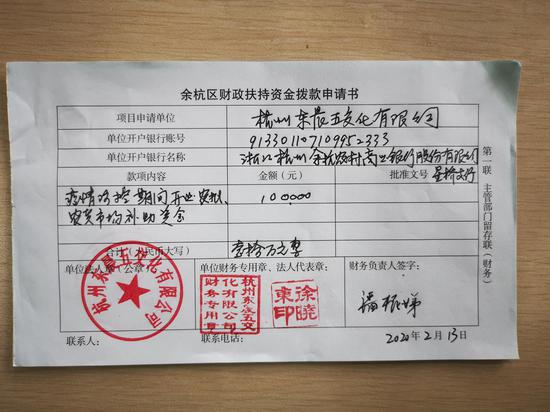 余杭区财政扶持资金拨款申请书
项目申请单位 杭州东晨五交化有限公司
单位开户银行账号 913301107109952333
单位开户银行名称 浙江杭州余杭农村商业银行股份有限公司
星桥支行
款项内容 金额(元) 批准文号
疫情防控期间开业农批、 100000
农贸市场补助资金
合计(人民币大写) 壹拾万元整
单位法人章(公章) 单位财务专用章、法人代表章: 财务负责人签字:
杭州东晨五交化有限公司
杭州东晨五交
化有限公司
财务专用章
徐晓
东印
联系人: 联系电话: 2020年2月13日
第一联 主管部门留存联(财务)